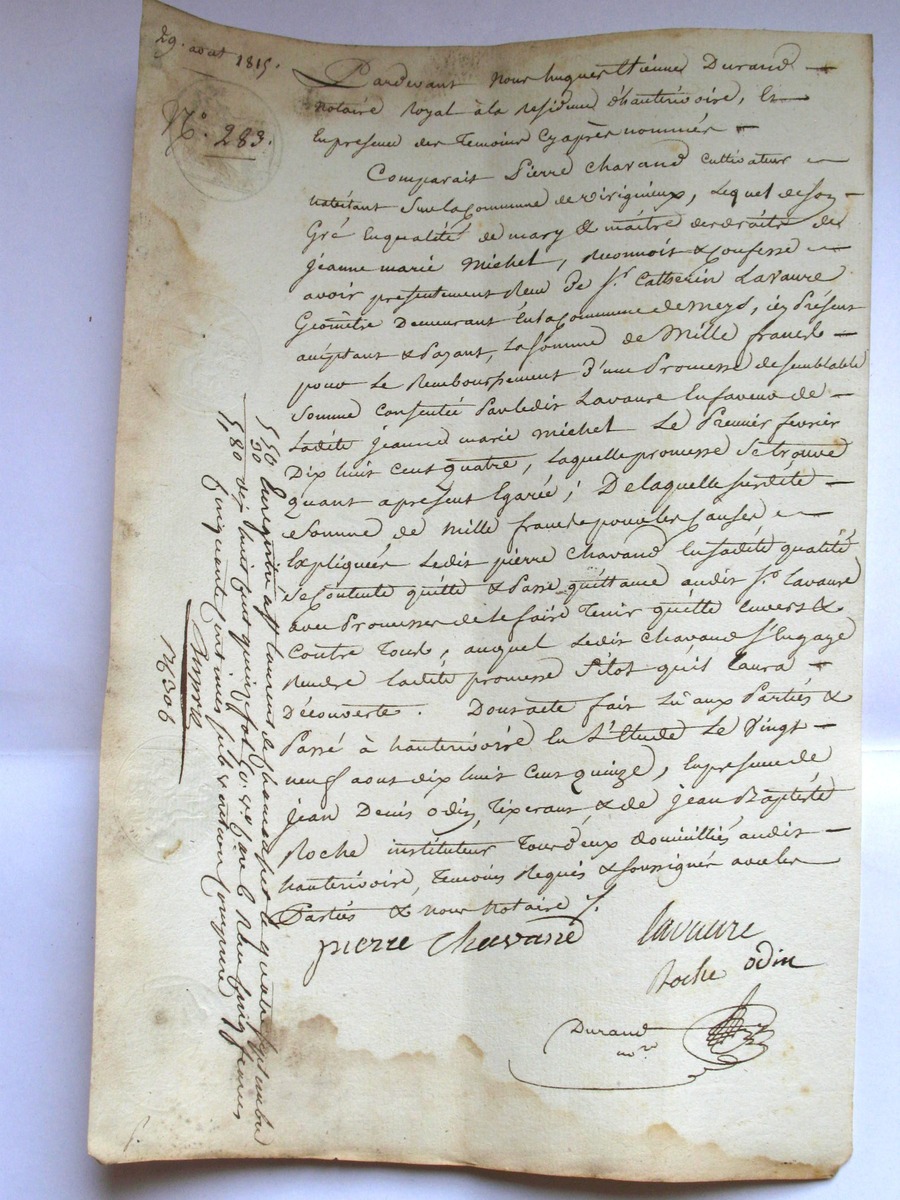 29. aout 1815.
N.º 283.
Pardevant Nous hugues Etienne Durand
Notaire Royal à la Residence d'hauterivoire, Et
En presence des Temoins Cy après nommés
Comparait Pierre Chavand Cultivateur
habitant Sur la Commune de virigneux, Lequel de Son
Gré En qualité de mary & maitre des droits de
jeanne marie Michel, Reconnoit & Confesse
avoir presentement Reçu De S.r Catherin Lavaure
Geomêtre Demeurant En la Commune de meys, icy Présent
aceptant & Payant, La Somme de Mille francs
pour Le Remboursement D'une Promesse de semblable
Somme Consentie Par ledit Lavaure En faveur de
Ladite jeanne marie Michel Le Premier fevrier
Dix huit Cent quatre, Laquelle promesse Se trouve
quant apresent Egarée; De laquelle susdite
Somme de Mille francs pour les Causes
Expliquées Ledit pierre Chavand En sadite qualité
Se Contente quitte & Passe quittance audit S.r Lavaure
avec Promesse de Le faire Tenir quitte Envers &
Contre Tous, auquel Ledit Chavand S'Engage
Rendre Ladite promesse Sitot qu'il L'aura
Découverte. Dont acte fait Lû aux Parties &
Passé à hauterivoire En L'Etude Le Vingt
neuf aout dix huit Cent quinze, En presence de
jean Denis odin, Tixerant & de Jean Baptiste
Roche instituteur Tous deux domicilliés audit
hauterivoire, Temoins Requis & soussignés avec les
Parties & Nous Notaire
pierre Chavand Lavaure
Roche odin
Durand
no.re
5 50 Enregistré à St Laurent de Chamousset le quatre septembre
50 dix huit cent quinze fol. Reçu cinq francs
5 80 cinquante centimes subvention comprise